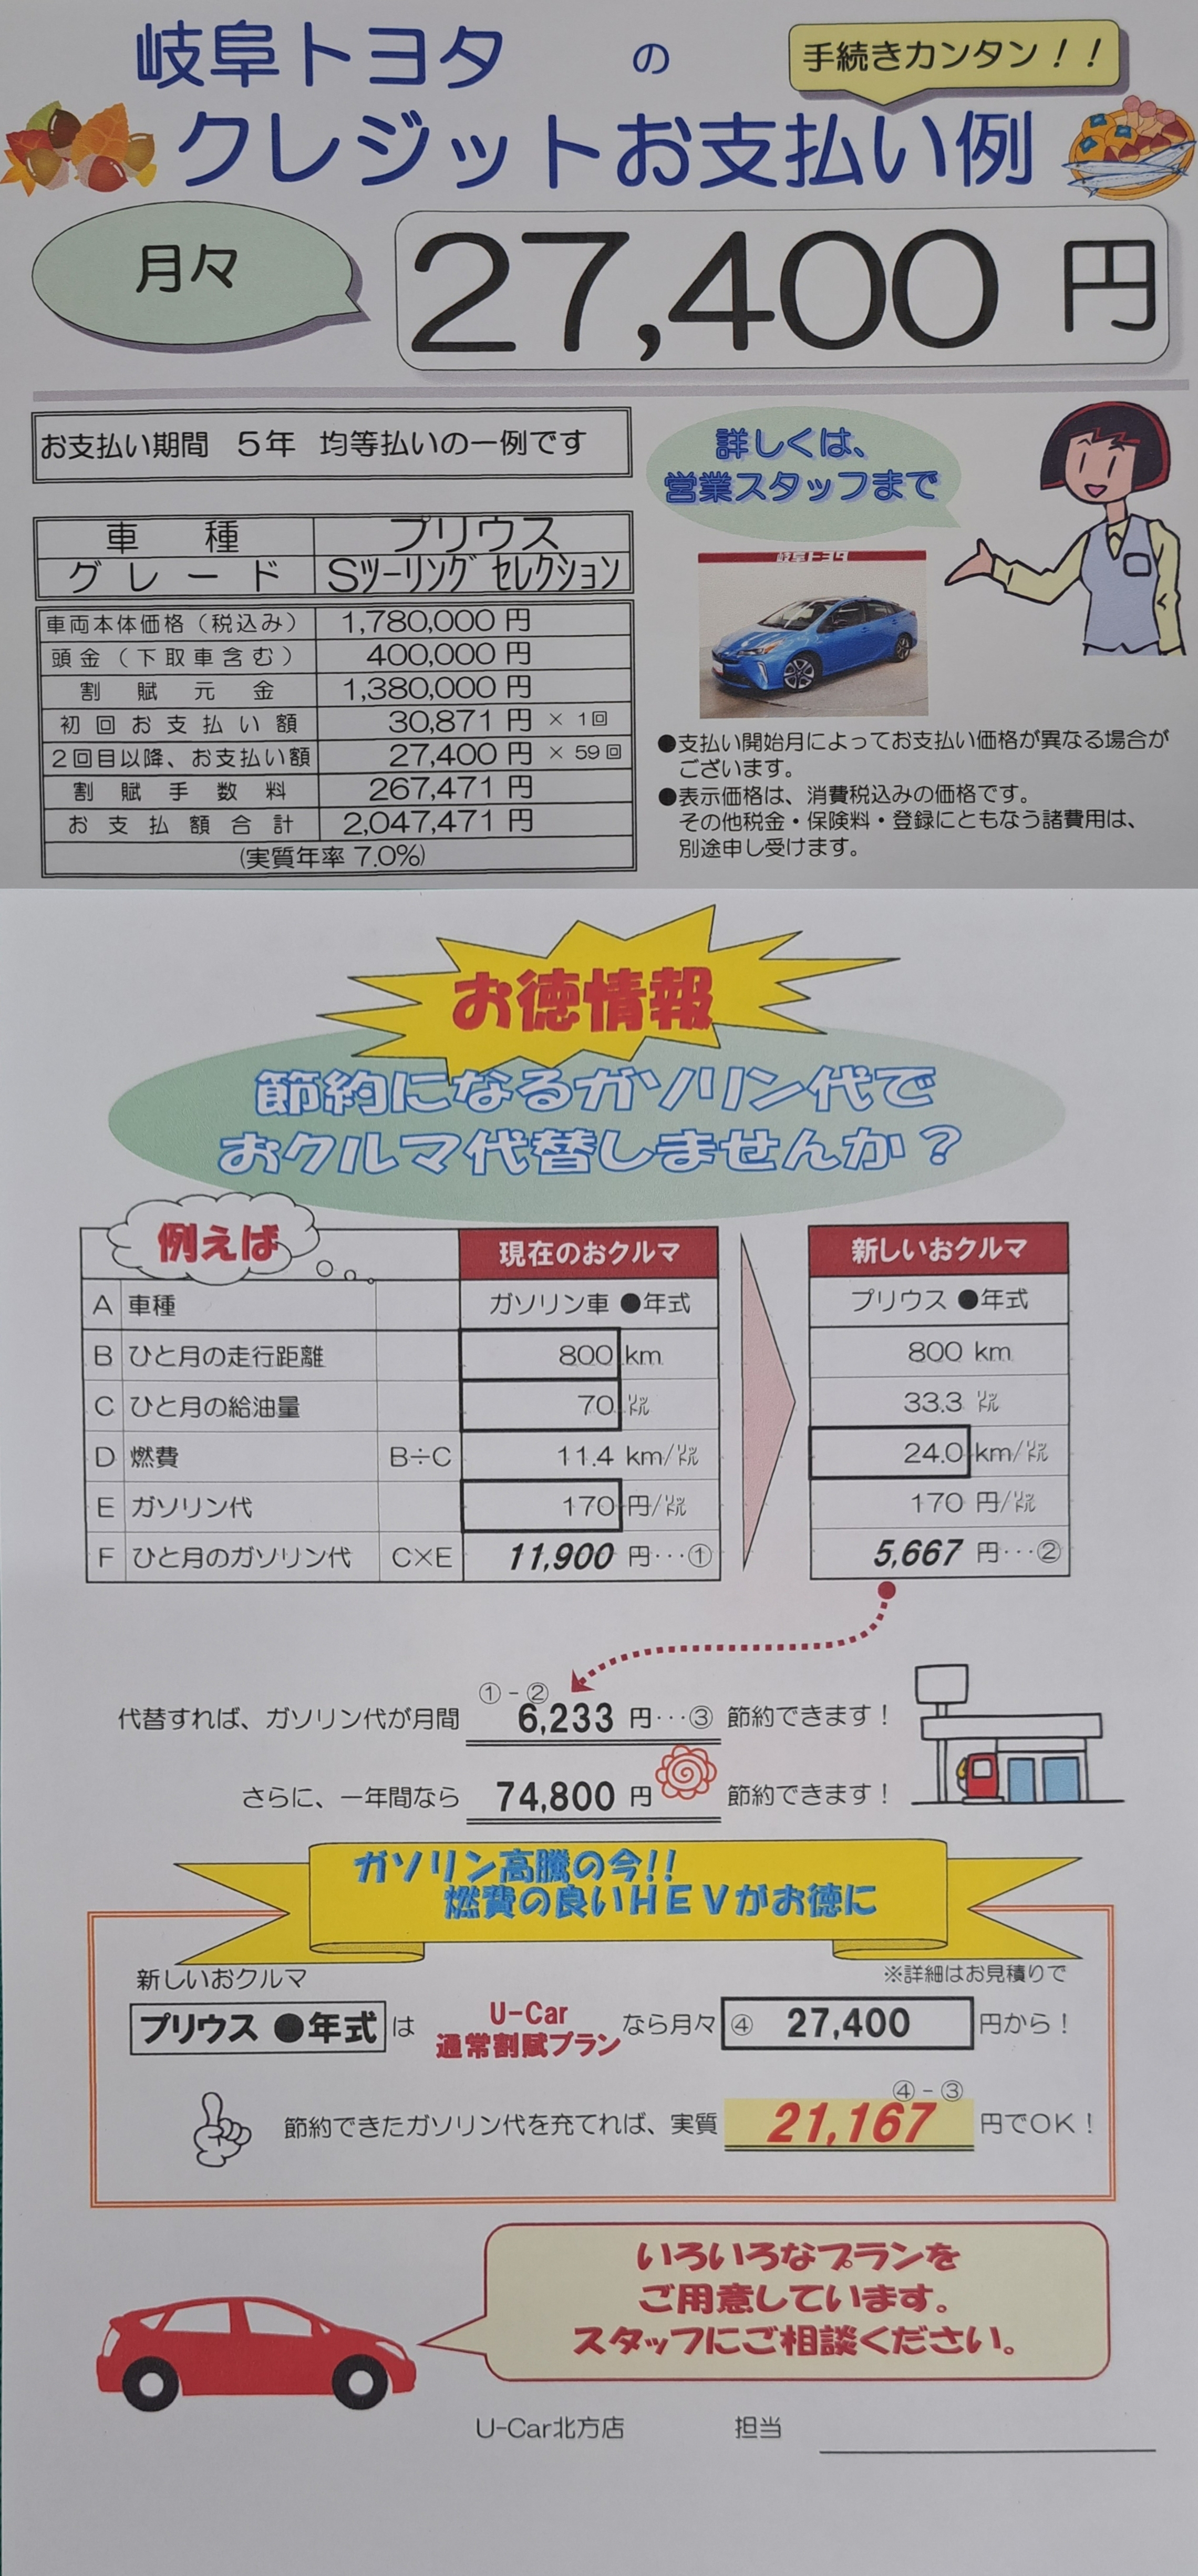 岐阜トヨタ の
手続きカンタン！！
クレジットお支払い例
月々
27,400 円
お支払い期間 5年 均等払いの一例です
詳しくは、
営業スタッフまで
車種 プリウス
グレード Sツーリングセレクション
岐阜トヨタ
車両本体価格（税込み） 1,780,000 円
頭金（下取車含む） 400,000 円
割賦元金 1,380,000 円
初回お支払い額 30,871 円 × 1回
2回目以降、お支払い額 27,400 円 × 59回
割賦手数料 267,471 円
お支払額合計 2,047,471 円
(実質年率 7.0%)
●支払い開始月によってお支払い価格が異なる場合が
ございます。
●表示価格は、消費税込みの価格です。
その他税金・保険料・登録にともなう諸費用は、
別途申し受けます。
お徳情報
節約になるガソリン代で
おクルマ代替しませんか？
例えば 現在のおクルマ 新しいおクルマ
A 車種 ガソリン車 ●年式 プリウス ●年式
B ひと月の走行距離 800 km 800 km
C ひと月の給油量 70 ㍑ 33.3 ㍑
D 燃費 B÷C 11.4 km/㍑ 24.0 km/㍑
E ガソリン代 170 円/㍑ 170 円/㍑
F ひと月のガソリン代 C×E 11,900 円･･･① 5,667 円･･･②
①-②
代替すれば、ガソリン代が月間 6,233 円･･･③ 節約できます！
さらに、一年間なら 74,800 円 節約できます！
ガソリン高騰の今!!
燃費の良いHEVがお徳に
新しいおクルマ ※詳細はお見積りで
プリウス ●年式 は U-Car 通常割賦プラン なら月々 ④ 27,400 円から！
④-③
節約できたガソリン代を充てれば、実質 21,167 円でOK！
いろいろなプランを
ご用意しています。
スタッフにご相談ください。
U-Car北方店 担当